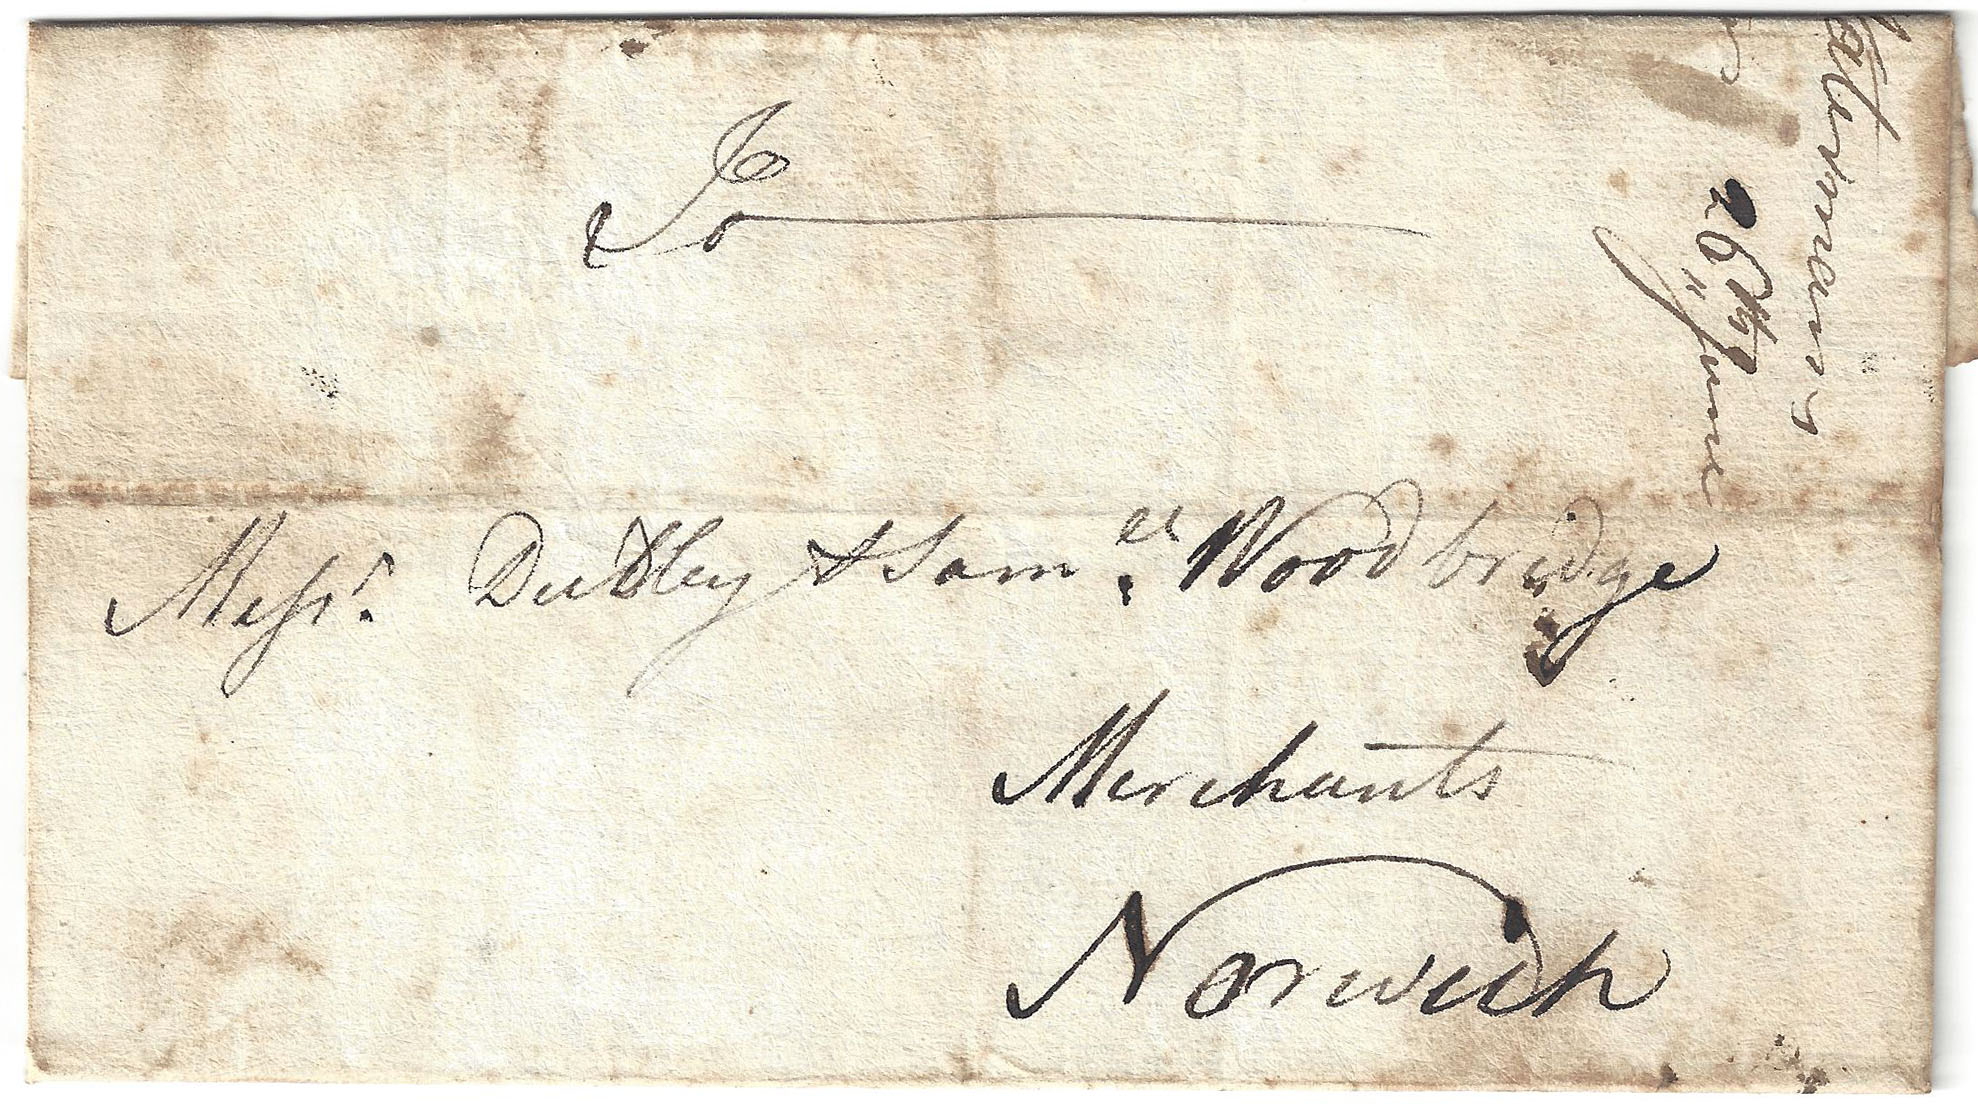 To
Messrs. Dudley & Saml. Woodbridge
Merchants
Norwich
26th June